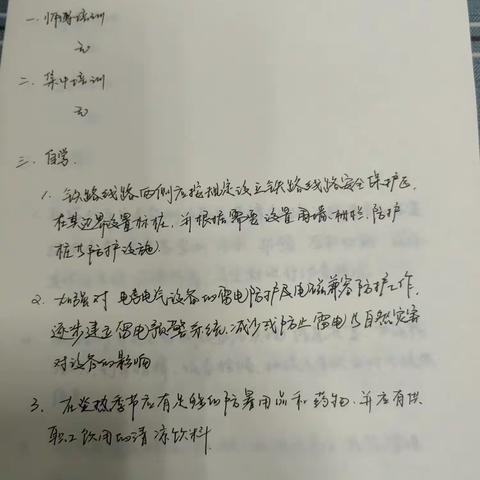 一. 师带培训
无
二. 集中培训
无
三. 自学.
1. 铁路线路两侧应按规定设立铁路线路安全保护区,
在其边界设置标桩, 并根据需要设置围墙.栅栏.防护
桩等防护设施)
2. 加强对电气设备的雷电防护及电磁兼容防护工作,
逐步建立雷电预警系统,减少或防止雷电等自然灾害
对设备的影响
3. 在炎热季节应有足够的防暑用品和药物,并应有供
职工饮用的清凉饮料.